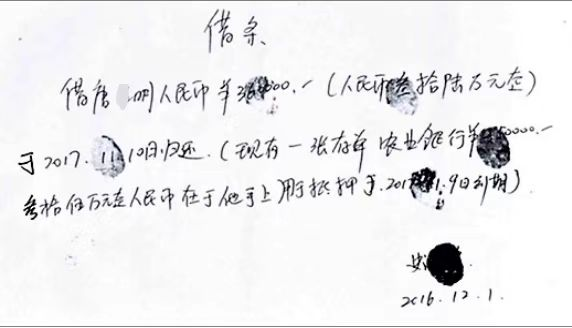 借条
借唐 明人民币 000.-(人民币叁拾陆万元正)
于2017.11.10日归还.(现有一张存单农业银行¥ 0000.-
叁拾伍万元正人民币在于他手上用于抵押于.201 1.9日到期)
2016.12.1.